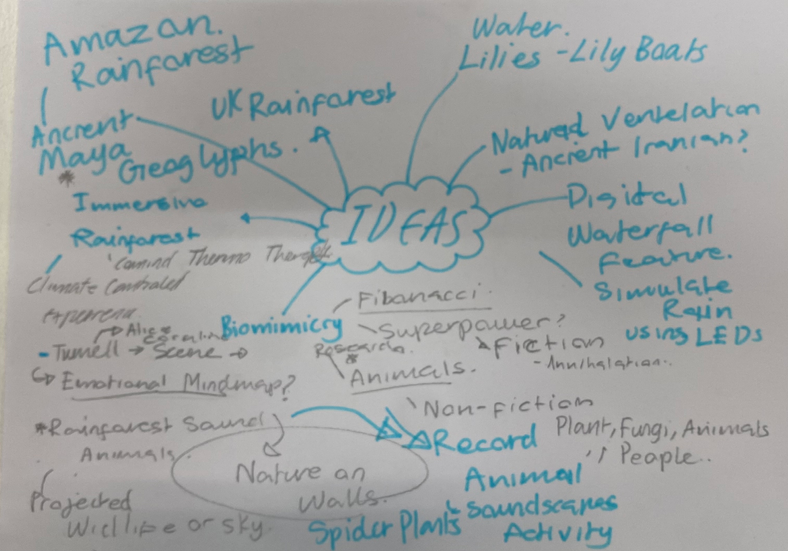 Amazan.
Rainfarest
Ancrent
Maya Geoglyphs.
*
UK Rainfarest
Water.
Lilies - Lily Boats
Natured Ventelation
- Ancient Iranian?
IDEAS
Digital
Waterfall
Feature.
Simulate
Rain
using LEDs
Immersive
Rainfarest
Thermo
Climate Controled
Alice
Coraline
- Tunnell → Scene →
Emotional Mindmap?
Biomimicry
Research.
Fibanacci.
Superpower?
Fiction
- Annihalation..
*
Animals.
Non-fiction
*Rainfarest Sound
Animals.
Nature an
Walls.
Projected
Wildlife or sky.
Record
Animal
Soundscapes
Activity
Plant, Fungi, Animals
" Peaple..
Spider Plants